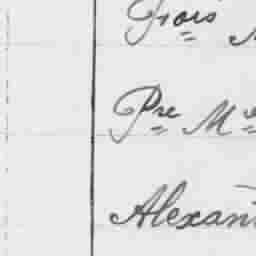 Fçois
Pre Me
Alexan